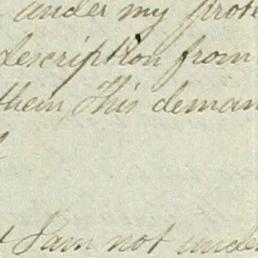 under my prote
description from
them This deman
I am not unde